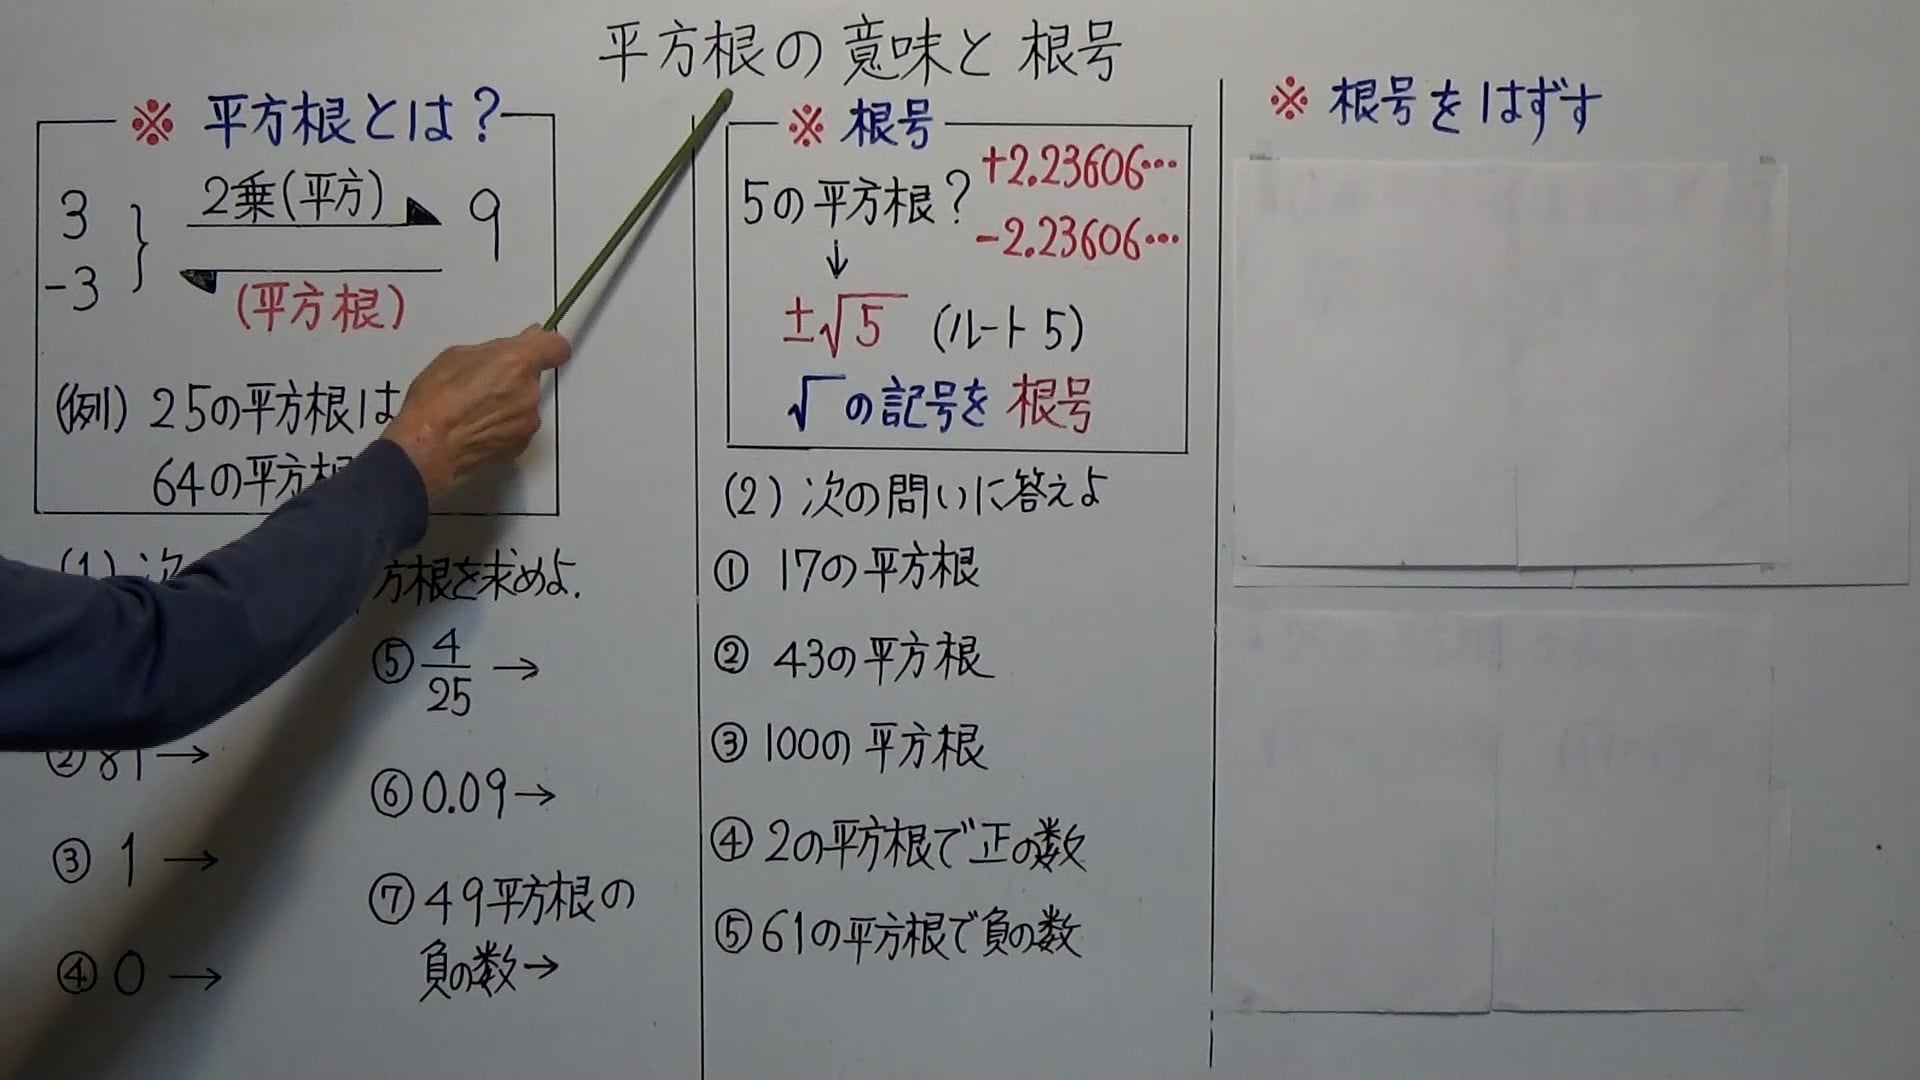 平方根の意味と根号
※ 平方根とは?
3
-3
2乗(平方)
9
(平方根)
(例) 25の平方根は
64の平方根
(1) 次
方根を求めよ.
② 81→
③ 1 →
④ 0 →
⑤ 4/25 →
⑥ 0.09→
⑦ 49平方根の
負の数→
※ 根号
5の平方根?
+2.23606…
-2.23606…
↓
±√5 (ルート5)
√の記号を 根号
(2) 次の問いに答えよ
① 17の平方根
② 43の平方根
③ 100の平方根
④ 2の平方根で正の数
⑤ 61の平方根で負の数
※ 根号をはずす